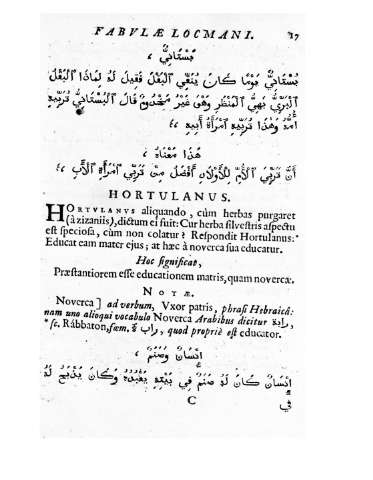 FABULÆ LOCMANI. 37
بُسْتَانِيٌّ
بُسْتَانِيٌّ يَوْمًا كَانَ يُنَقِّي ٱلْبَقْلَ فَقِيلَ لَهُ لِمَاذَا ٱلْبَقْلُ
ٱلْبَرِّيُّ بَهِيُّ ٱلْمَنْظَرِ وَهُوَ غَيْرُ مَخْدُومٍ قَالَ ٱلْبُسْتَانِيُّ تُرَبِّيهِ
أُمُّهُ وَهٰذَا تُرَبِّيهِ ٱمْرَأَةُ أَبِيهِ
هٰذَا مَعْنَاهُ
أَنَّ تَرَبِّيَ ٱلْأُمِّ لِلْأَوْلَادِ أَفْضَلُ مِنْ تَرَبِّي ٱمْرَأَةِ ٱلْأَبِ
HORTULANUS.
HORTULANUS aliquando, cùm herbas purgaret
(à zizaniis), dictum ei fuit: Cur herba silvestris aspectu
est speciosa, cùm non colatur? Respondit Hortulanus:
Educat eam mater ejus; at hæc à noverca sua educatur.
Hoc significat,
Præstantiorem esse educationem matris, quam novercæ.
NOTÆ.
Noverca] ad verbum, Vxor patris, phrasi Hebraicâ:
nam uno alioqui vocabulo Noverca Arabibus dicitur رابة,
* sc. Râbbaton, fœm. راب, quod propriè est educator.
إِنْسَانٌ وَصَنَمٌ
إِنْسَانٌ كَانَ لَهُ صَنَمٌ فِي بَيْتِهِ يَعْبُدُهُ وَكَانَ يَذْبَحُ لَهُ
C فِي